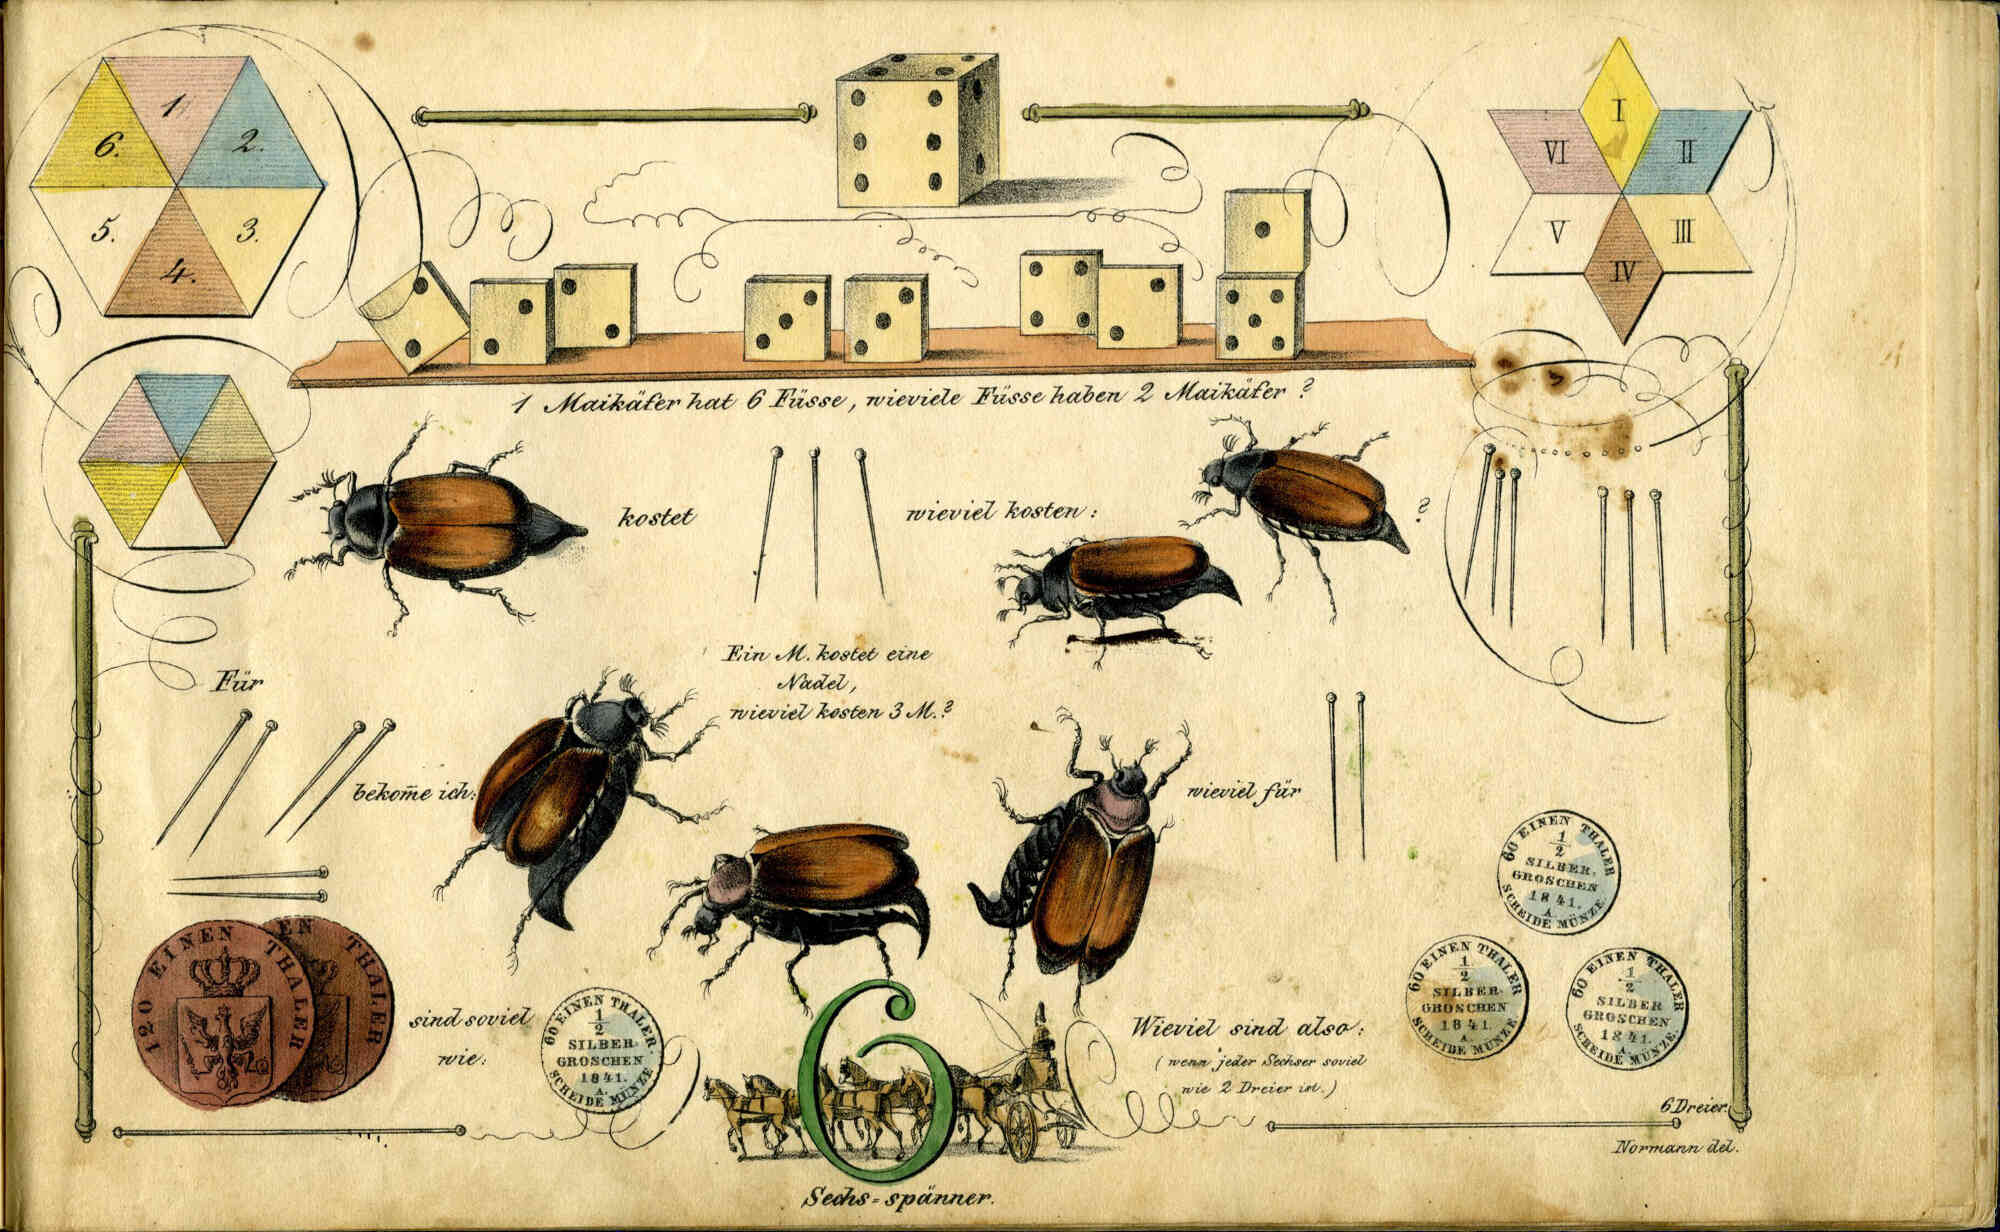 1.
2.
3.
4.
5.
6.
I
II
III
IV
V
VI
1 Maikäfer hat 6 Füsse, wieviele Füsse haben 2 Maikäfer?
kostet
wieviel kosten:
?
Ein M. kostet eine
Nadel,
wieviel kosten 3 M.?
Für
bekom̄e ich:
wieviel für
120 EINEN THALER
EN THALER
sind soviel
wie:
60 EINEN THALER.
1/2
SILBER
GROSCHEN
1841.
A.
SCHEIDE MÜNZE
6
Sechs=spänner.
Wieviel sind also:
(wenn jeder Sechser soviel
wie 2 Dreier ist.)
60 EINEN THALER
1/2
SILBER.
GROSCHEN
1841.
A.
SCHEIDE MÜNZE.
60 EINEN THALER
1/2
SILBER
GROSCHEN
1841.
A.
SCHEIDE MÜNZE
60 EINEN THALER
1/2
SILBER
GROSCHEN
1841.
A.
SCHEIDE MÜNZE.
6 Dreier.
Normann del.